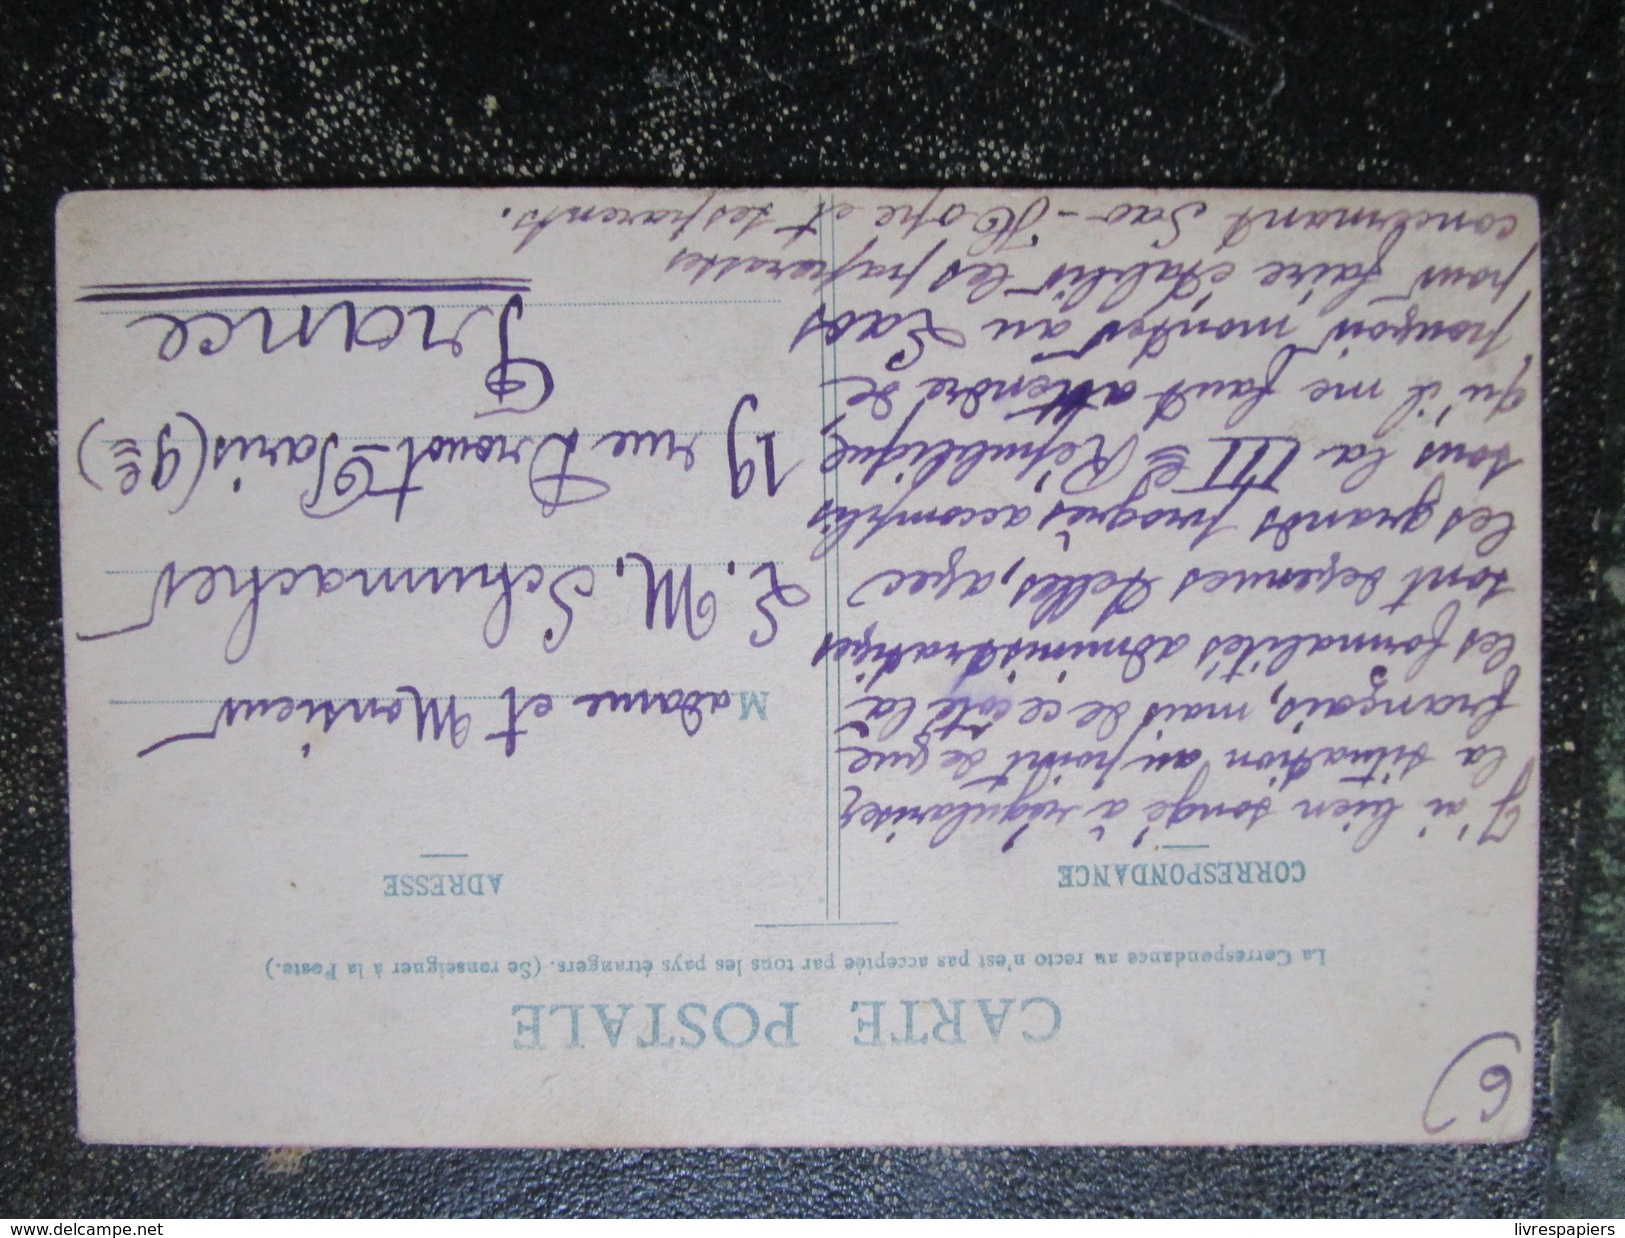 6)
CARTE POSTALE
La Correspondance au recto n'est pas acceptée par tous les pays étrangers. (Se renseigner à la Poste.)
CORRESPONDANCE
J'ai bien songé à régulariser
la situation au point de vue
français, mais de ce côté là
les formalités administratives
sont devenues telles, avec
les grands progrès accomplis
sous la IIIe République,
qu'il me faut attendre de
pouvoir monter au Laos
pour faire établir les paperasses
concernant Sao-Hope et ses parents.
ADRESSE
Madame et Monsieur
L. M. Schumacher
19 rue Drouot - Paris (9e)
France
www.delcampe.net
livrespapiers